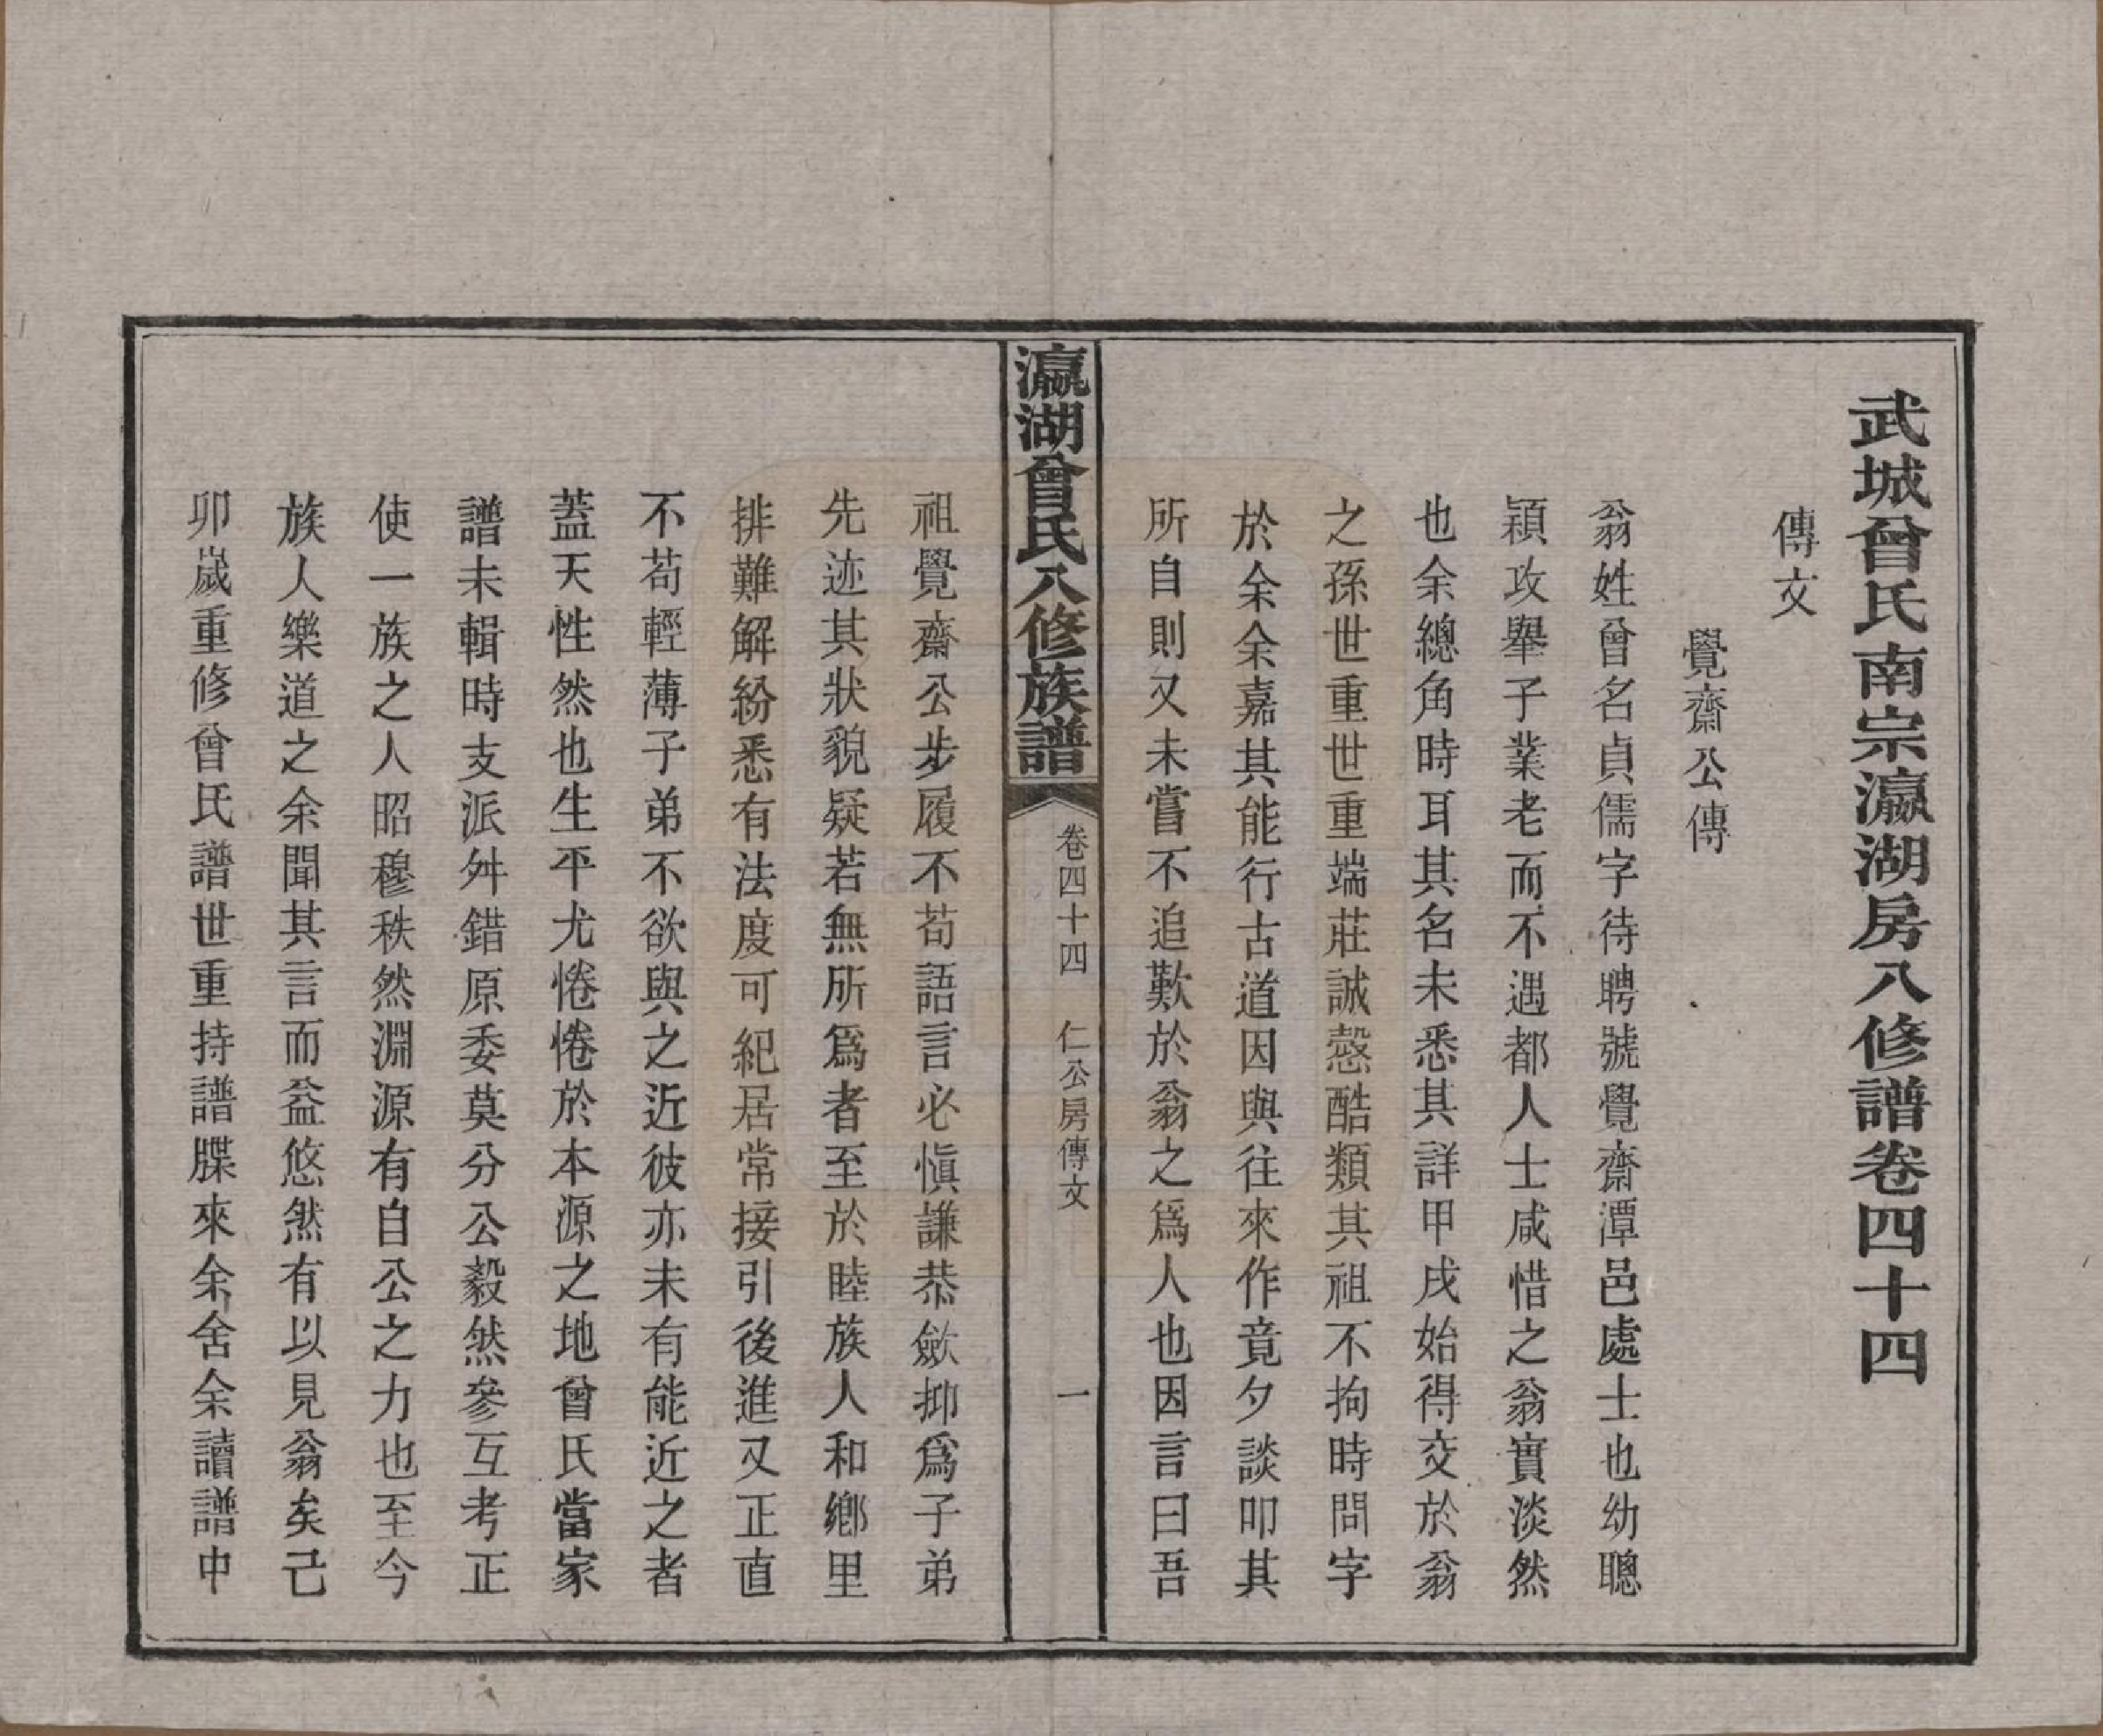 武城曾氏南宗瀛湖房八修譜卷四十四
傳文
覺齋公傳
翁姓曾名貞儒字待聘號覺齋潭邑處士也幼聰
穎攻舉子業老而不遇都人士咸惜之翁實淡然
也余總角時耳其名未悉其詳甲戌始得交於翁
之孫世重世重端莊誠愨酷類其祖不拘時問字
於余余嘉其能行古道因與往來作竟夕談叩其
所自則又未嘗不追歎於翁之爲人也因言曰吾
瀛湖曾氏八修族譜
卷四十四
仁公房傳文
一
祖覺齋公步履不苟語言必愼謙恭斂抑爲子弟
先迹其狀貌疑若無所爲者至於睦族人和鄉里
排難解紛悉有法度可紀居常接引後進又正直
不苟輕薄子弟不欲與之近彼亦未有能近之者
蓋天性然也生平尤惓惓於本源之地曾氏當家
譜未輯時支派舛錯原委莫分公毅然參互考正
使一族之人昭穆秩然淵源有自公之力也至今
族人樂道之余聞其言而益悠然有以見翁矣己
卯嵗重修曾氏譜世重持譜牒來余舍余讀譜中